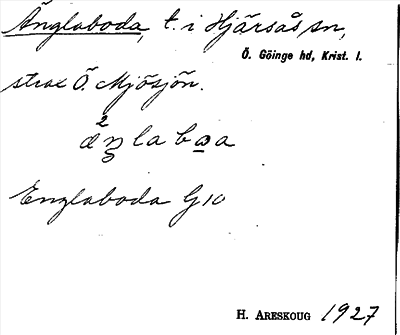 Änglaboda, t. i Hjärsås sn,
Ö. Göinge hd, Krist. l.
strax Ö. Mjösjön.
Englaboda G 10
H. Areskoug 1927